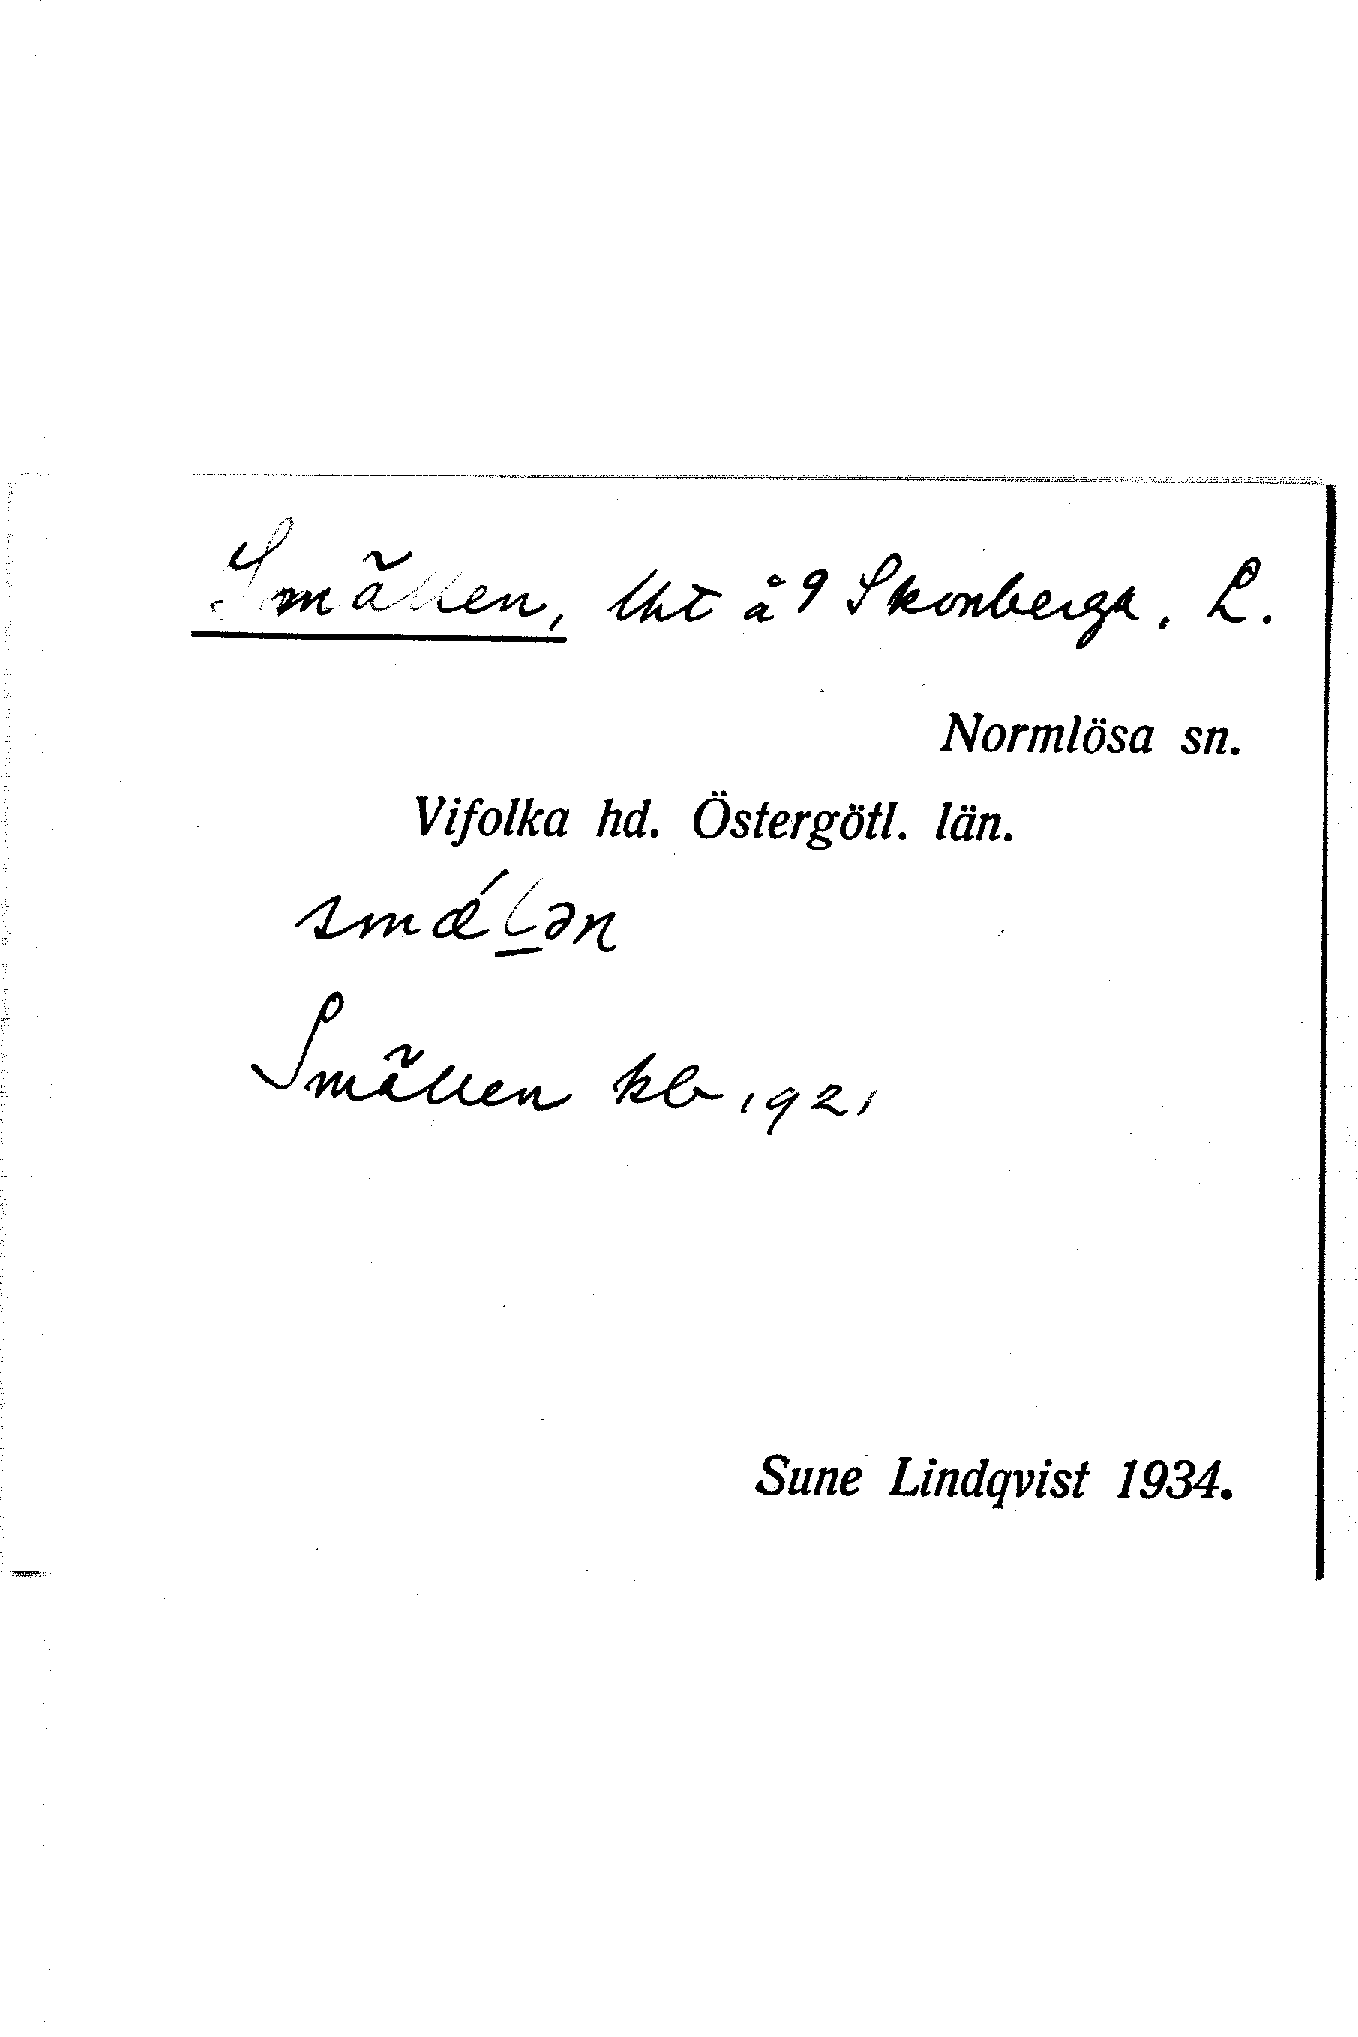 Smällen, lht å 9 Skonberga. L.
Normlösa sn.
Vifolka hd. Östergötl. län.
smǽl̲ən
Smällen kb 1921
Sune Lindqvist 1934.